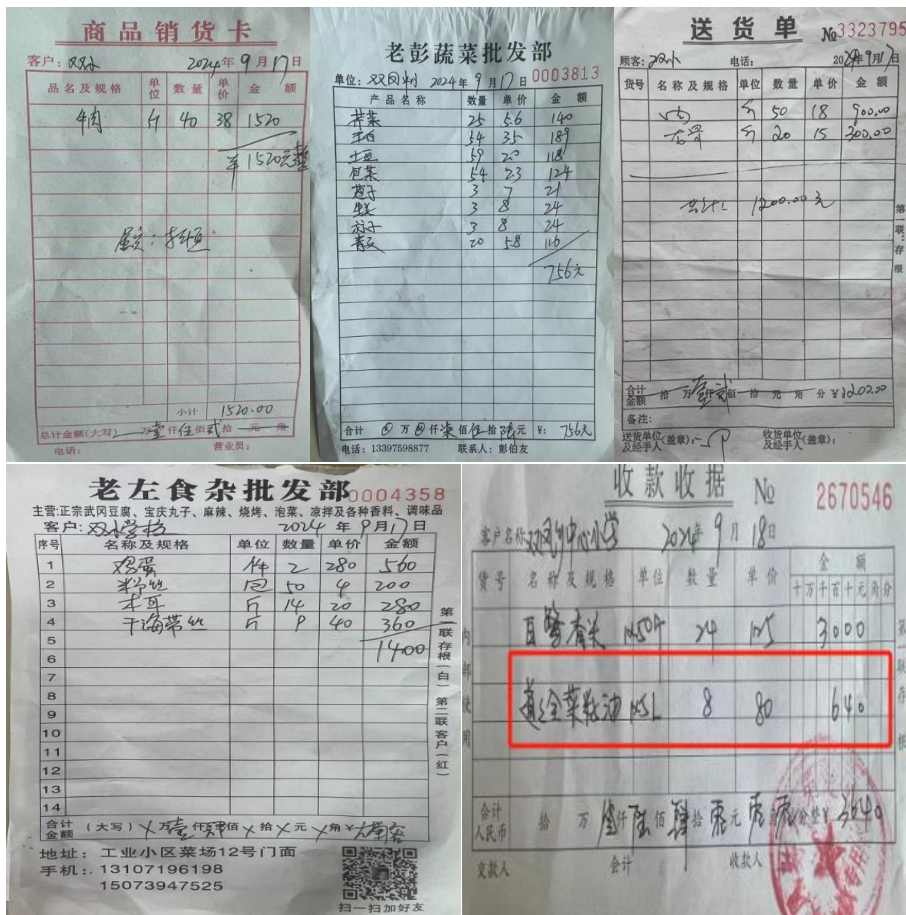 商品销货卡
客户：双小 2024年9月17日
品名及规格 单位 数量 单价 金额
牛肉 斤 40 38 1520
¥1520元整
小计 1520.00
总计金额(大写) 万壹仟伍佰贰拾元角
电话： 营业员：
老彭蔬菜批发部
单位： 2024年9月17日 0003813
产品名称 数量 单价 金额
芹菜 25 5.6 140
54 35 189
土豆 59 20 118
包菜 54 23 124
3 7 21
3 8 24
3 8 24
20 5.8 116
756元
合计 万 仟柒佰伍拾 元 ¥: 756元
电话：13397598877 联系人：彭伯友
送货单 №3323795
顾客：双小 电话： 2024年9月17日
货号 名称及规格 单位 数量 单价 金额
肉 斤 50 18 900.00
斤 20 15 300.00
共计： 1200.00元
第一联：存根
合计金额 拾 万 仟 佰 拾 元 角 分 ¥1202.00
备注：
送货单位及经手人(盖章)： 收货单位及经手人(盖章)：
老左食杂批发部 0004358
主营:正宗武冈豆腐、宝庆丸子、麻辣、烧烤、泡菜、凉拌及各种香料、调味品
客户：双小学校 2024年9月17日
序号 名称及规格 单位 数量 单价 金额
1 鸡蛋 件 2 280 560
2 粉丝 包 50 4 200
3 木耳 斤 14 20 280
4 干海带丝 斤 9 40 360
5 1400
6
7
8
9
10
11
12
13
14
第一联存根(白) 第二联客户(红)
合计金额 (大写) 万壹仟肆佰 拾 元 角 ¥
地址：工业小区菜场12号门面
手机：13107196198
15073947525
扫一扫加好友
收款收据 № 2670546
客户名称 双凤乡中心小学 2024年9月18日
货号 名称及规格 单位 数量 单价 金额
十万千百十元角分
24 125 3000
菜籽油 1×5L 8 80 640
内部使用
第一联存根
合计人民币 拾 万 叁仟陆佰肆拾零元零角零分整¥3640
交款人 会计 收款人